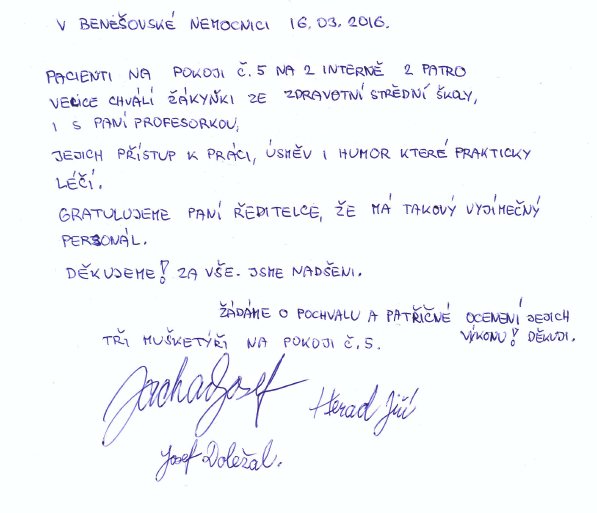 V BENEŠOVSKÉ NEMOCNICI 16.03.2016.
PACIENTI NA POKOJI Č.5 NA 2 INTERNĚ 2 PATRO
VELICE CHVÁLÍ ŽÁKYŇKI ZE ZDRAVOTNÍ STŘEDNÍ ŠKOLY,
I S PANÍ PROFESORKOU,
JEJICH PŘÍSTUP K PRÁCI, ÚSMĚV I HUMOR KTERÉ PRAKTICKY
LÉČÍ.
GRATULUJEME PANÍ ŘEDITELCE, ŽE MÁ TAKOVÝ VYJÍMEČNÝ
PERSONÁL.
DĚKUJEME! ZA VŠE. JSME NADŠENI.
ŽÁDÁME O POCHVALU A PATŘIČNÉ OCENENÍ JEJICH
VÝKONU! DĚKUJI.
TŘI MUŠKETÝŘI NA POKOJI Č.5.
Josef
Herad Jiří
Josef Doležal.